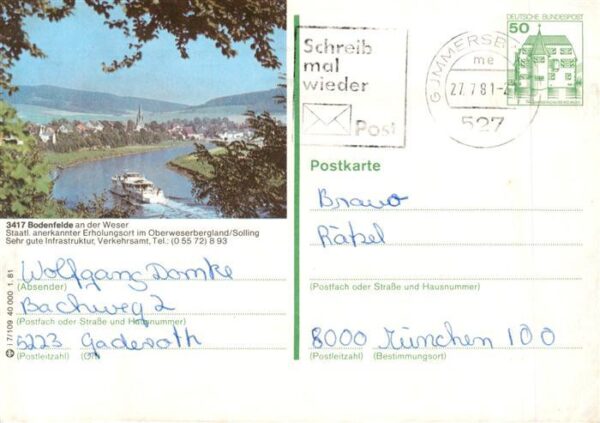 3417 Bodenfelde an der Weser
Staatl. anerkannter Erholungsort im Oberweserbergland/Solling
Sehr gute Infrastruktur, Verkehrsamt, Tel.: (0 55 72) 8 93
Wolfgang Domke
(Absender)
Bachweg 2
(Postfach oder Straße und Hausnummer)
5223 Gaderoth
(Postleitzahl) (Ort)
i 7/109 40 000 1. 81
Schreib
mal
wieder
Post
GUMMERSB
me
27.7.81-2
527
DEUTSCHE BUNDESPOST
50
Postkarte
Bravo
Rätsel
(Postfach oder Straße und Hausnummer)
8000 München 100
(Postleitzahl) (Bestimmungsort)